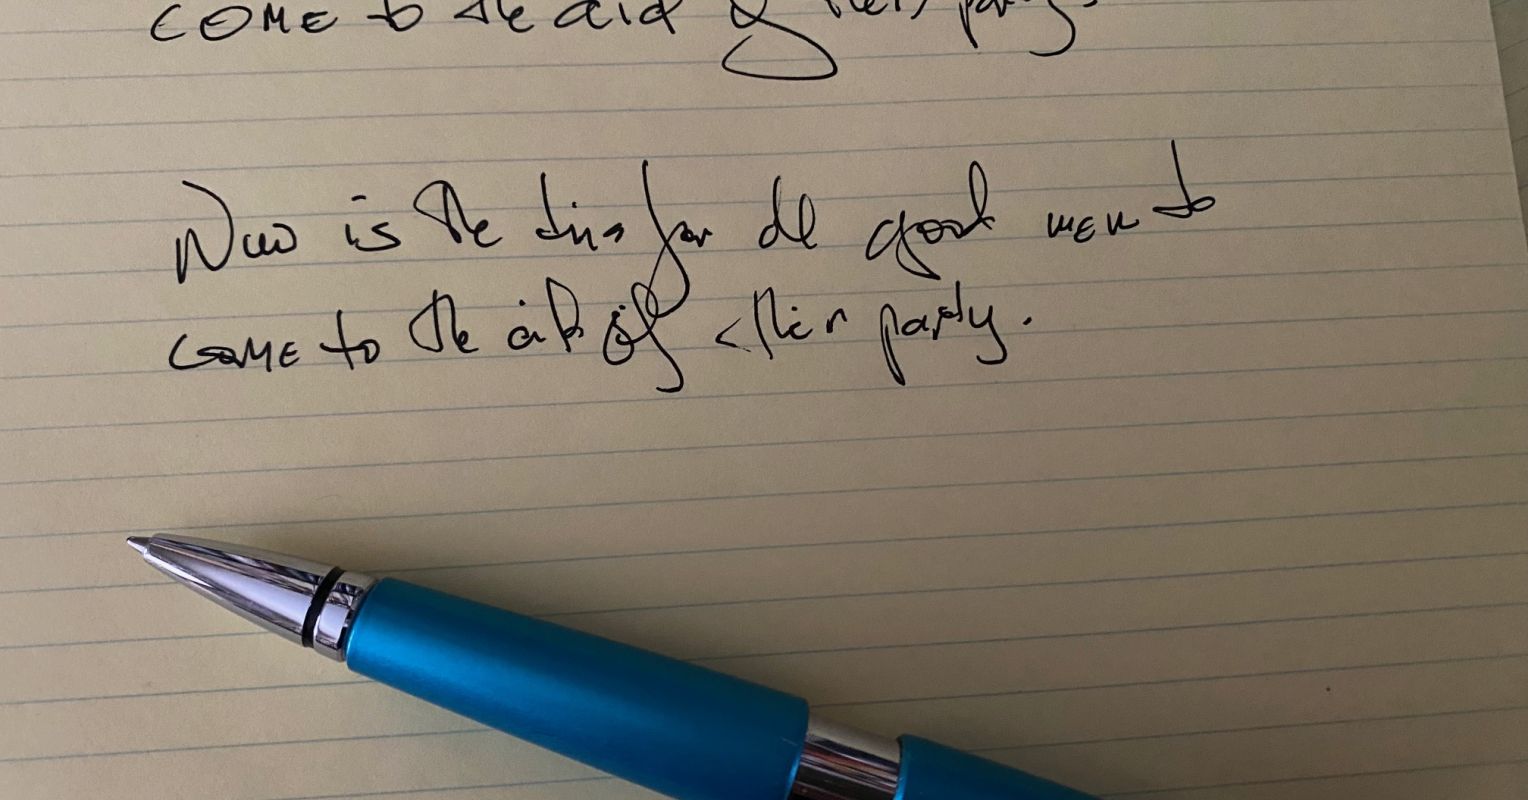 COME to the aid of their party.
Now is the time for all good men to
COME to the aid of their party.